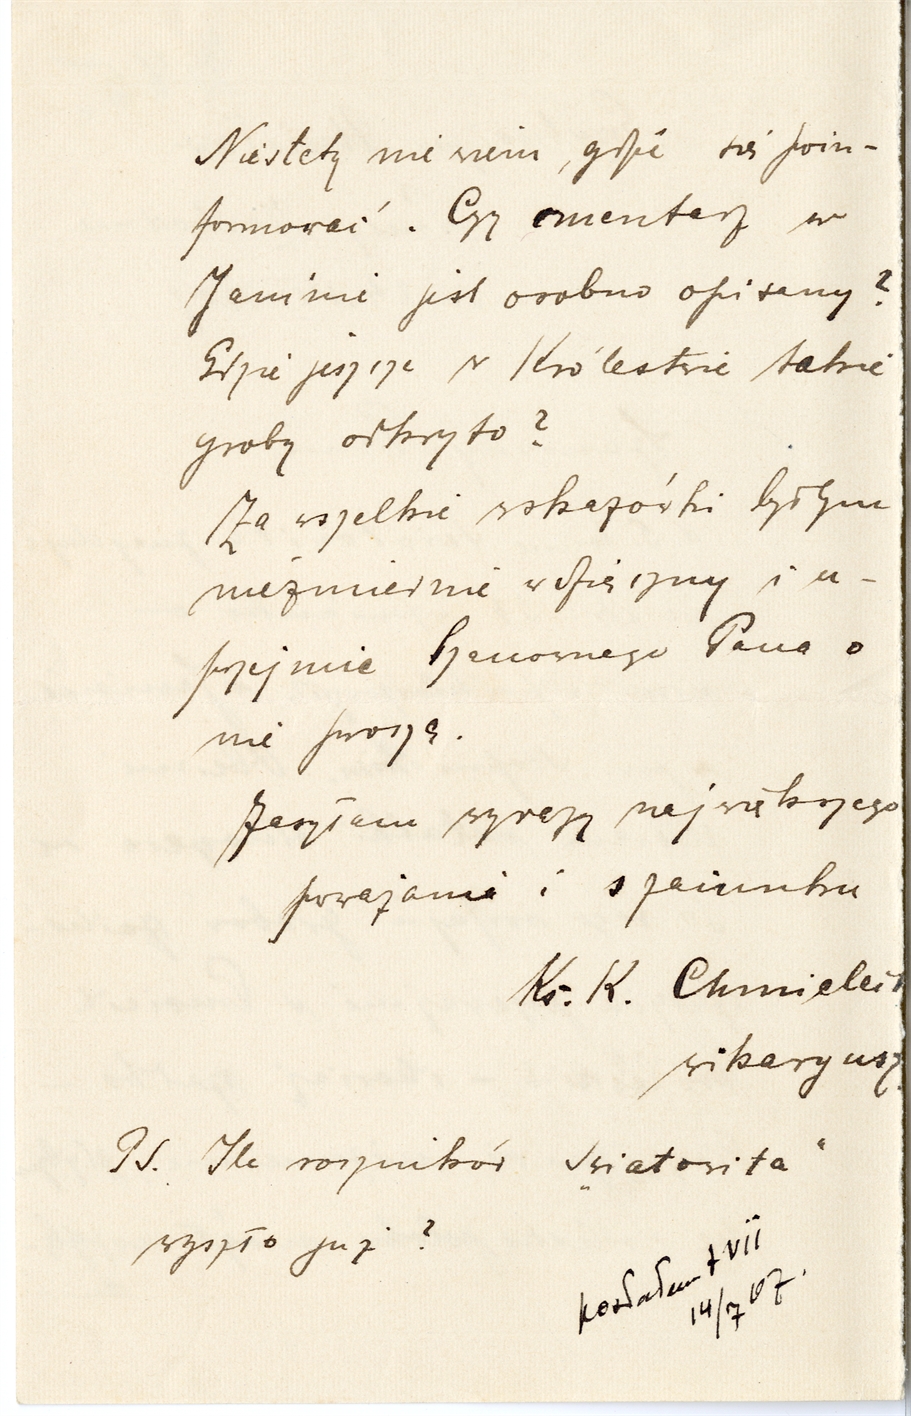 Niestety nie wiem, gdzie się poin-
formować. Czy cmentarz w
Janinie jest osobno opisany?
Gdzie jeszcze w Królestwie takie
groby odkryto?
Za wszelkie wskazówki byłbym
niezmiernie wdzięczny i u-
przejmie Szanownego Pana o
nie proszę.
Zasyłam wyrazy największego
poważania i szacunku
Ks. K. Chmieleck
wikaryusz
PS. Ile roczników „Światowita"
wyszło już?
posłałem t VII
14/7 07.